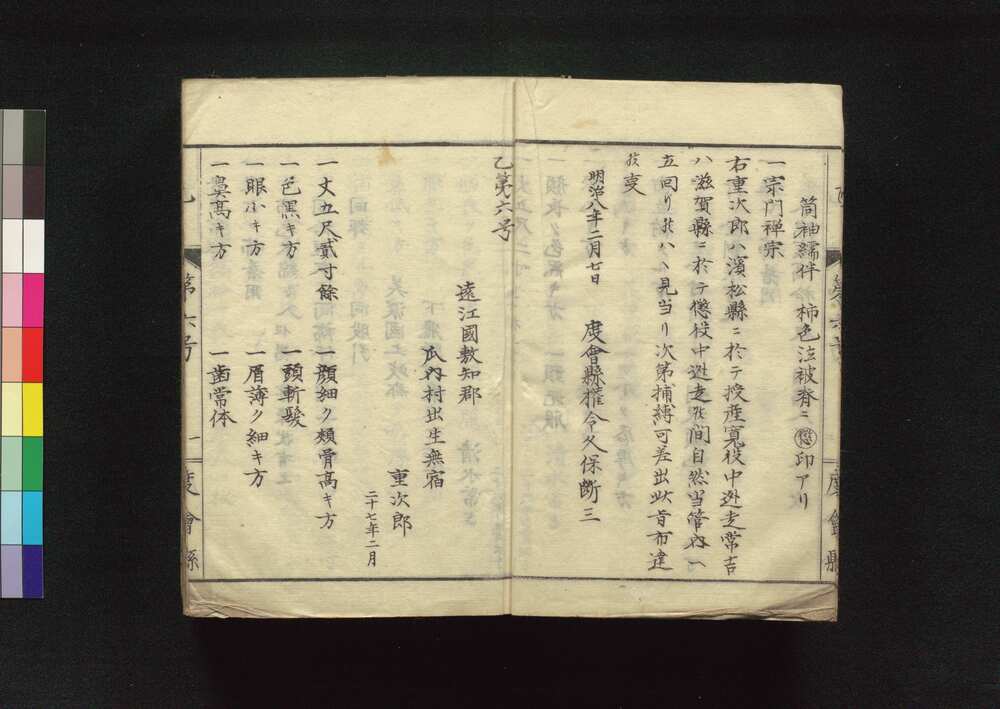 筒袖繻伴柿色法被脊ニ懲印アリ
一宗門禅宗
右重次郎ハ濱松縣ニ於テ授産寛役中迯走常吉
ハ滋賀縣ニ於テ懲役中迯走候間自然当管内ヘ
立回リ候ハヽ見当リ次第捕縛可差出此旨布達
候叓
明治八年二月七日
度會縣權令久保断三
乙第六号
遠江國敷知郡
瓜内村出生無宿
重次郎
二十七年二月
一丈五尺貳寸餘
一顔細ク頬骨高キ方
一色黒キ方
一頭斬髪
一眼小キ方
一眉薄ク細キ方
一鼻高キ方
一歯常体
第六号
一
度會縣